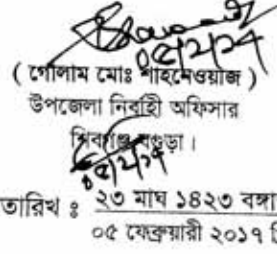 ০৫/২/১৭
( গোলাম মোঃ শাহনেওয়াজ )
উপজেলা নির্বাহী অফিসার
শিবগঞ্জ, বগুড়া।
০৫/২/১৭
তারিখ ঃ ২৩ মাঘ ১৪২৩ বঙ্গা
০৫ ফেব্রুয়ারী ২০১৭ খ্রি